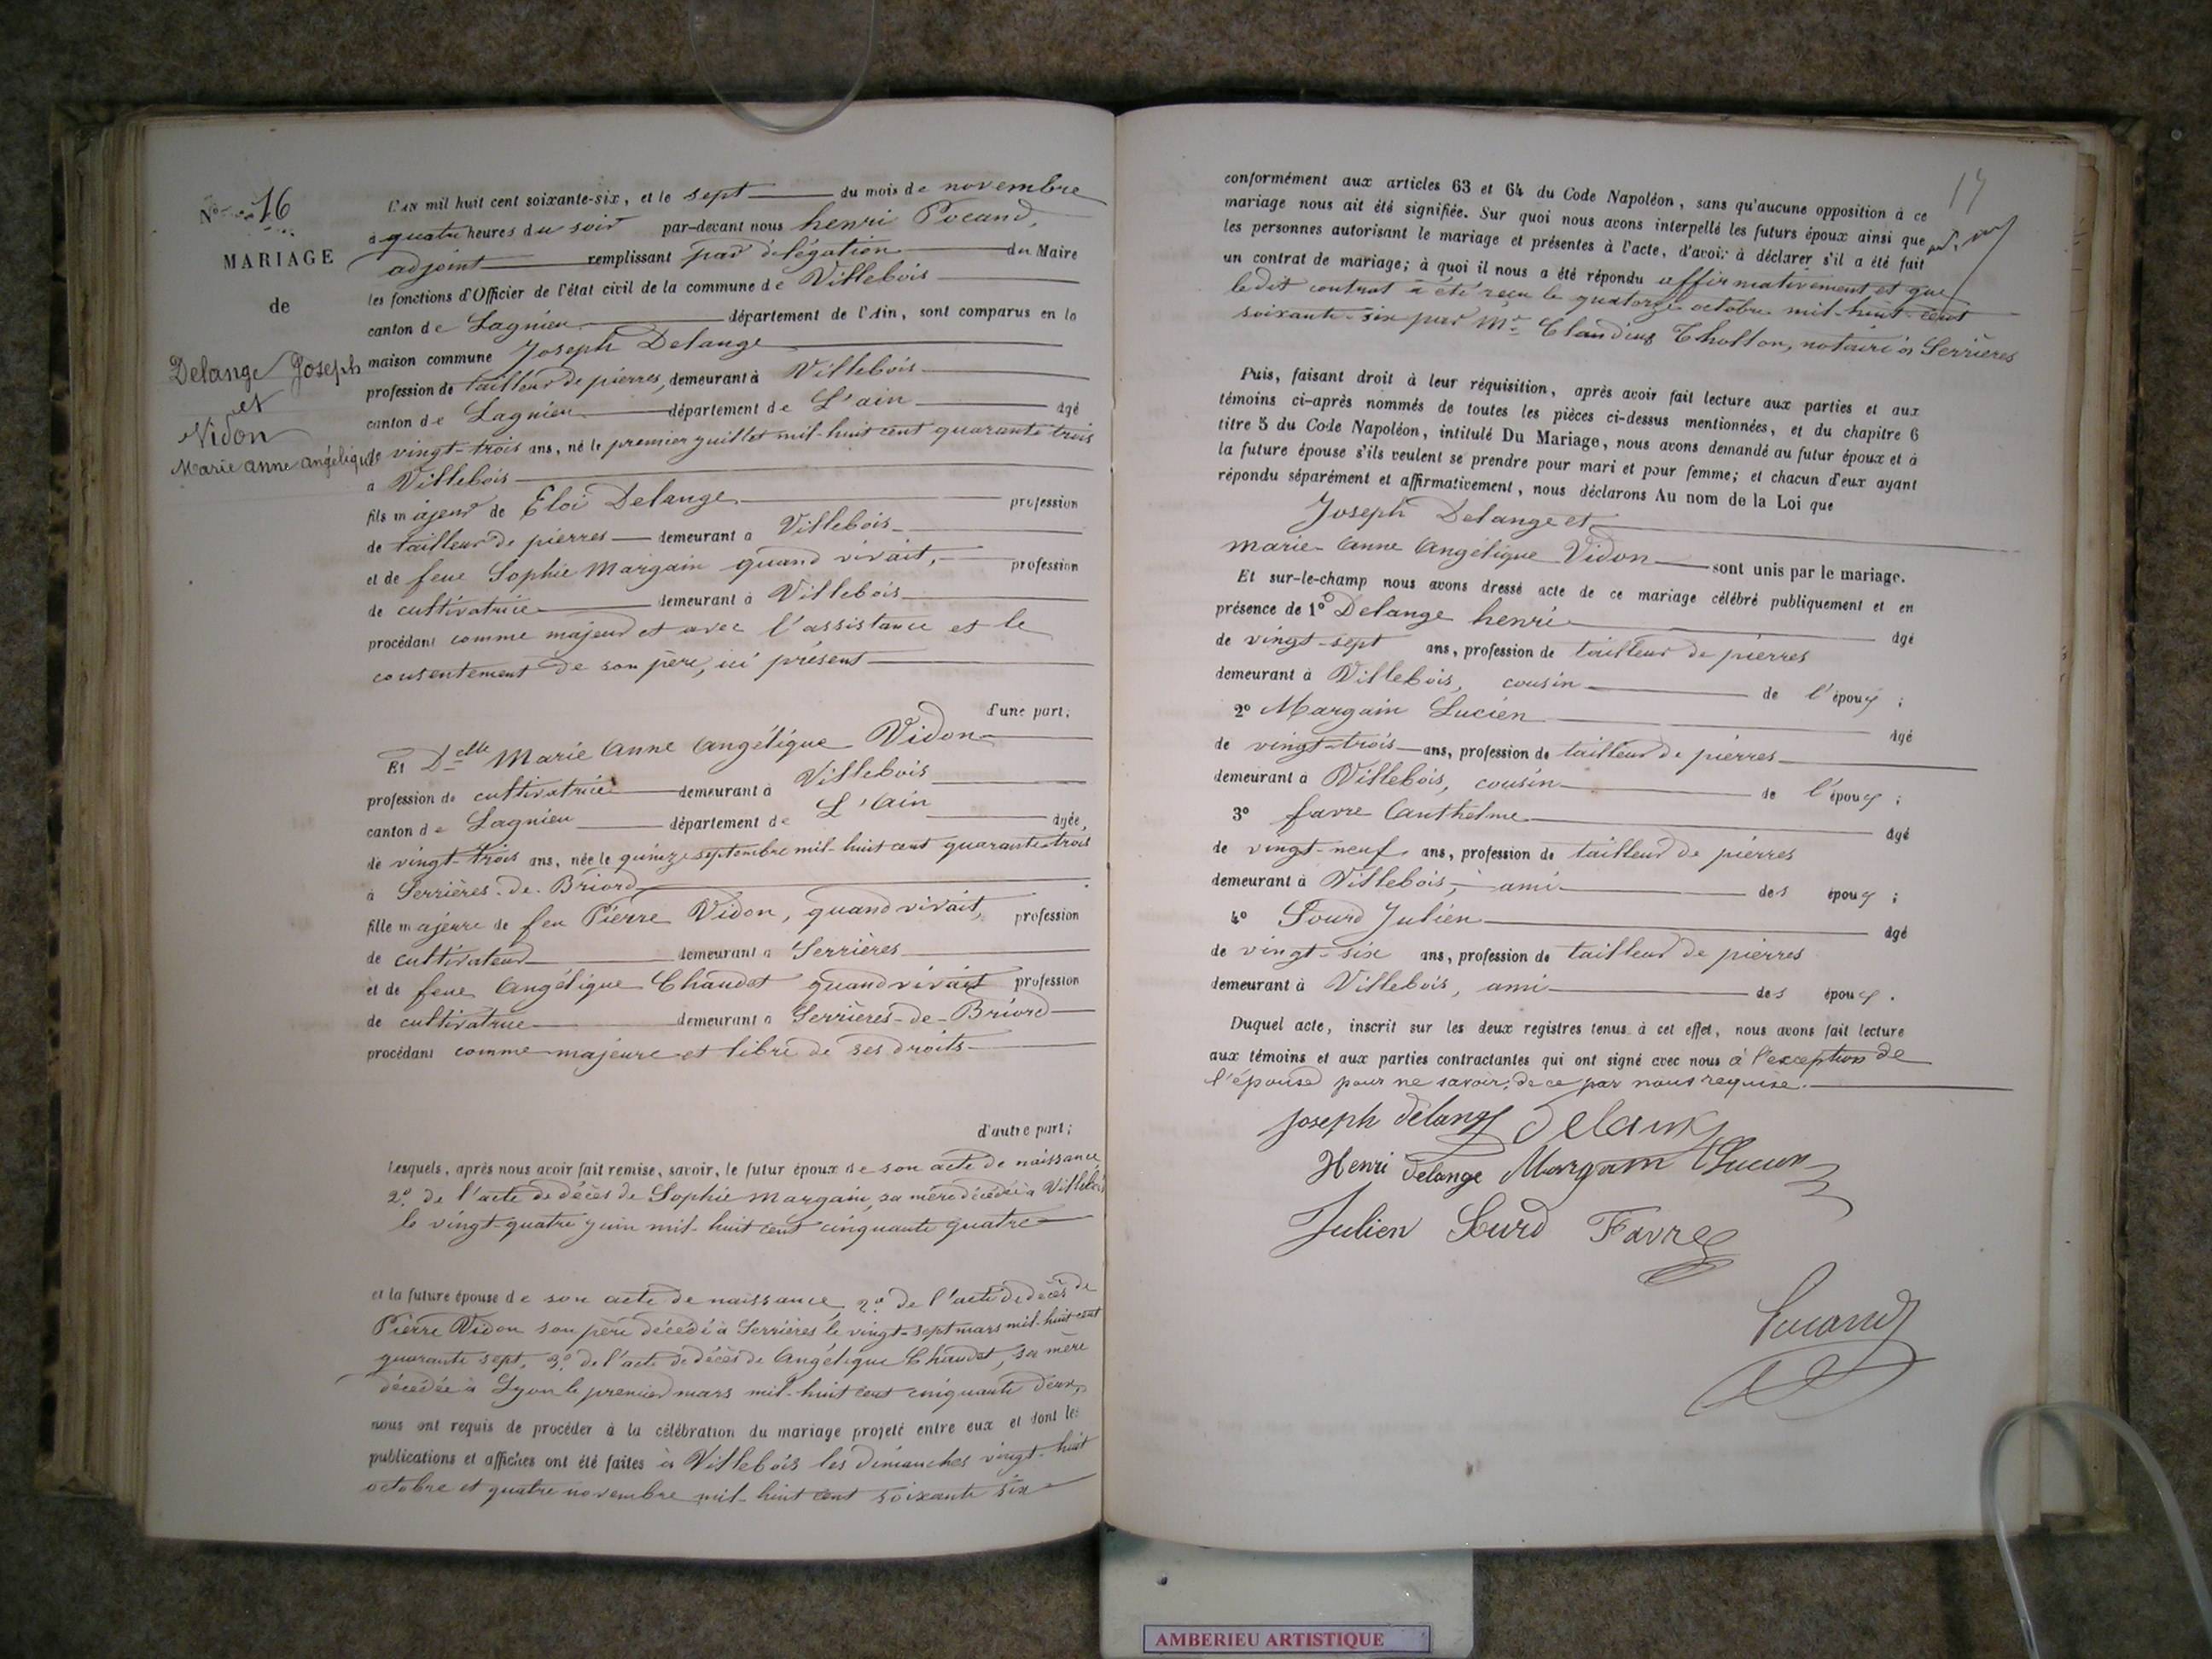 N° 16
MARIAGE
de
Delange Joseph
et
Vidon
Marie anne angélique
L'AN mil huit cent soixante-six, et le sept du mois de novembre
à quatre heures du soir par-devant nous henri Pocand,
adjoint remplissant par délégation du Maire
les fonctions d'Officier de l'état civil de la commune de Villebois
canton de Lagnieu département de l'Ain, sont comparus en la
maison commune Joseph Delange
profession de tailleur de pierres, demeurant à Villebois
canton de Lagnieu département de L'ain âgé
de vingt-trois ans, né le premier juillet mil-huit cent quarante trois
à Villebois
fils majeur de Eloi Delange profession
de tailleur de pierres demeurant à Villebois
et de feue Sophie Margain quand vivait, profession
de cultivatrice demeurant à Villebois
procédant comme majeur et avec l'assistance et le
consentement de son père, ici présent
d'une part;
Et Delle Marie Anne Angélique Vidon
profession de cultivatrice demeurant à Villebois
canton de Lagnieu département de L'Ain âgée,
de vingt-trois ans, née le quinze septembre mil-huit cent quarante-trois
à Serrières-de-Briord
fille majeure de feu Pierre Vidon, quand vivait, profession
de cultivateur demeurant à Serrières
et de feue Angélique Chaudet quand vivait profession
de cultivatrice demeurant à Serrières-de-Briord
procédant comme majeure et libre de ses droits
d'autre part;
lesquels, après nous avoir fait remise, savoir, le futur époux de son acte de naissance
2° de l'acte de décès de Sophie Margain, sa mère décédée à Villebois
le vingt-quatre juin mil-huit cent cinquante quatre
et la future épouse de son acte de naissance 2° de l'acte de décès de
Pierre Vidon son père décédé à Serrières le vingt-sept mars mil-huit cent
quarante sept, 3° de l'acte de décès de Angélique Chaudet, sa mère
décédée à Lyon le premier mars mil-huit cent cinquante deux,
nous ont requis de procéder à la célébration du mariage projeté entre eux et dont les
publications et affiches ont été faites à Villebois les dimanches vingt-huit
octobre et quatre novembre mil-huit cent soixante six
17
conformément aux articles 63 et 64 du Code Napoléon, sans qu'aucune opposition à ce
mariage nous ait été signifiée. Sur quoi nous avons interpellé les futurs époux ainsi que
les personnes autorisant le mariage et présentes à l'acte, d'avoir à déclarer s'il a été fait
un contrat de mariage; à quoi il nous a été répondu affirmativement et que
ledit contrat a été reçu le quatorze octobre mil-huit cent
soixante-six par Mr Claudius Tholton, notaire à Serrières
Puis, faisant droit à leur réquisition, après avoir fait lecture aux parties et aux
témoins ci-après nommés de toutes les pièces ci-dessus mentionnées, et du chapitre 6
titre 5 du Code Napoléon, intitulé Du Mariage, nous avons demandé au futur époux et à
la future épouse s'ils veulent se prendre pour mari et pour femme; et chacun d'eux ayant
répondu séparément et affirmativement, nous déclarons Au nom de la Loi que
Joseph Delange et
marie-Anne Angélique Vidon sont unis par le mariage.
Et sur-le-champ nous avons dressé acte de ce mariage célébré publiquement et en
présence de 1° Delange henri âgé
de vingt-sept ans, profession de tailleur de pierres
demeurant à Villebois, cousin de l'époux ;
2° Margain Lucien âgé
de vingt-trois ans, profession de tailleur de pierres
demeurant à Villebois, cousin de l'époux ;
3° favre Anthelme âgé
de vingt-neuf ans, profession de tailleur de pierres
demeurant à Villebois, ami des époux ;
4° Sourd Julien âgé
de vingt-six ans, profession de tailleur de pierres
demeurant à Villebois, ami des époux.
Duquel acte, inscrit sur les deux registres tenus à cet effet, nous avons fait lecture
aux témoins et aux parties contractantes qui ont signé avec nous à l'exception de
l'épouse pour ne savoir, de ce par nous requise.
Joseph delange Delange
Henri delange Margain Lucien
Julien Sourd Favre
Pocand
AMBERIEU ARTISTIQUE